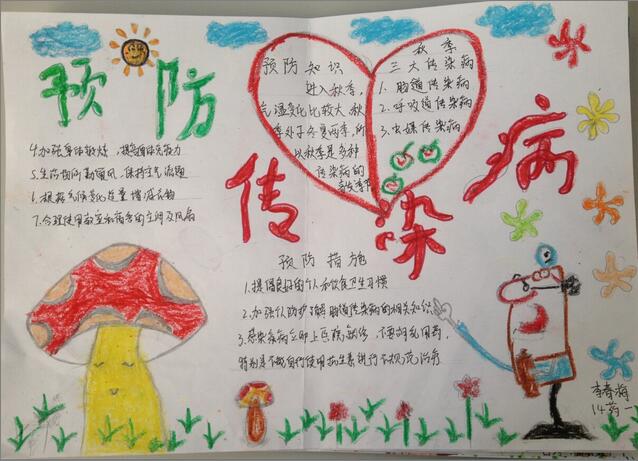 预防
传染病
预防知识
进入秋季，
气温变化比较大 秋
季处于冬夏两季，所
以秋季是多种
传染病的
高发季节
秋季
三大传染病
1. 肠道传染病
2. 呼吸道传染病
3. 虫媒传染病
预防措施
1.提倡良好的个人和饮食卫生习惯
2.加强认防护了解肠道传染病的相关知识
3.感染疾病立即上医院就诊，不要胡乱用药，
特别是不能自行使用抗生素进行不规范治疗
4.加强身体锻炼，提高自体免疫力
5.生活用房勤通风，保持空气流通
6.根据气候变化适量增减衣物
7.合理使用教室和宿舍的空间及风扇
李春海
14药一